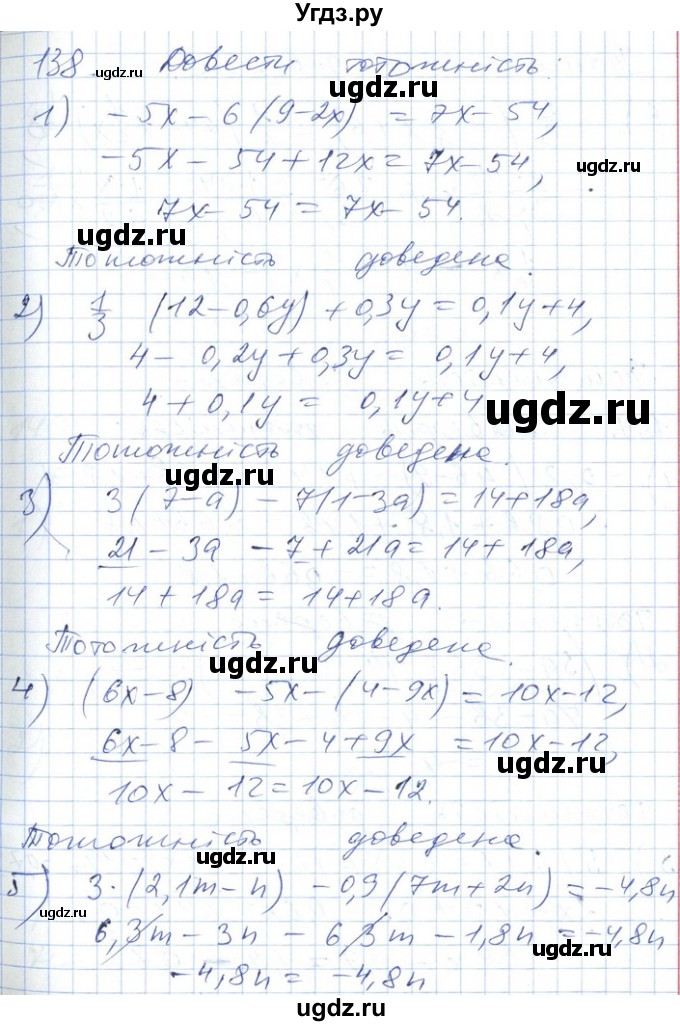 Угдз.ру
138 Довести тотожність:
1) -5x - 6(9-2x) = 7x - 54,
-5x - 54 + 12x = 7x - 54,
7x - 54 = 7x - 54.
Тотожність доведена.
2) 1/3 (12 - 0,6y) + 0,3y = 0,1y + 4,
4 - 0,2y + 0,3y = 0,1y + 4,
4 + 0,1y = 0,1y + 4
Тотожність доведена.
3) 3(7-a) - 7(1-3a) = 14 + 18a,
21 - 3a - 7 + 21a = 14 + 18a,
14 + 18a = 14 + 18a.
Тотожність доведена.
4) (6x-8) - 5x - (4-9x) = 10x - 12,
6x - 8 - 5x - 4 + 9x = 10x - 12,
10x - 12 = 10x - 12.
Тотожність доведена.
5) 3·(2,1m - n) - 0,9(7m + 2n) = -4,8n
6,3m - 3n - 6,3m - 1,8n = -4,8n
-4,8n = -4,8n
ugdz.ru
ugdz.ru
ugdz.ru
ugdz.ru
ugdz.ru
ugdz.ru
ugdz.ru
ugdz.ru
ugdz.ru
ugdz.ru
ugdz.ru
ugdz.ru
ugdz.ru
ugdz.ru